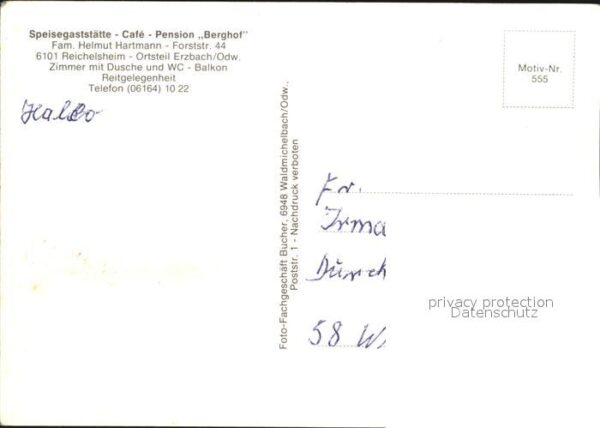 Speisegaststätte - Café - Pension „Berghof"
Fam. Helmut Hartmann - Forststr. 44
6101 Reichelsheim - Ortsteil Erzbach/Odw.
Zimmer mit Dusche und WC - Balkon
Reitgelegenheit
Telefon (06164) 10 22
Hallo
Foto-Fachgeschäft Bucher, 6948 Waldmichelbach/Odw.,
Poststr. 1 - Nachdruck verboten
Motiv-Nr.
555
Fr.
Irma
58 W
privacy protection
Datenschutz